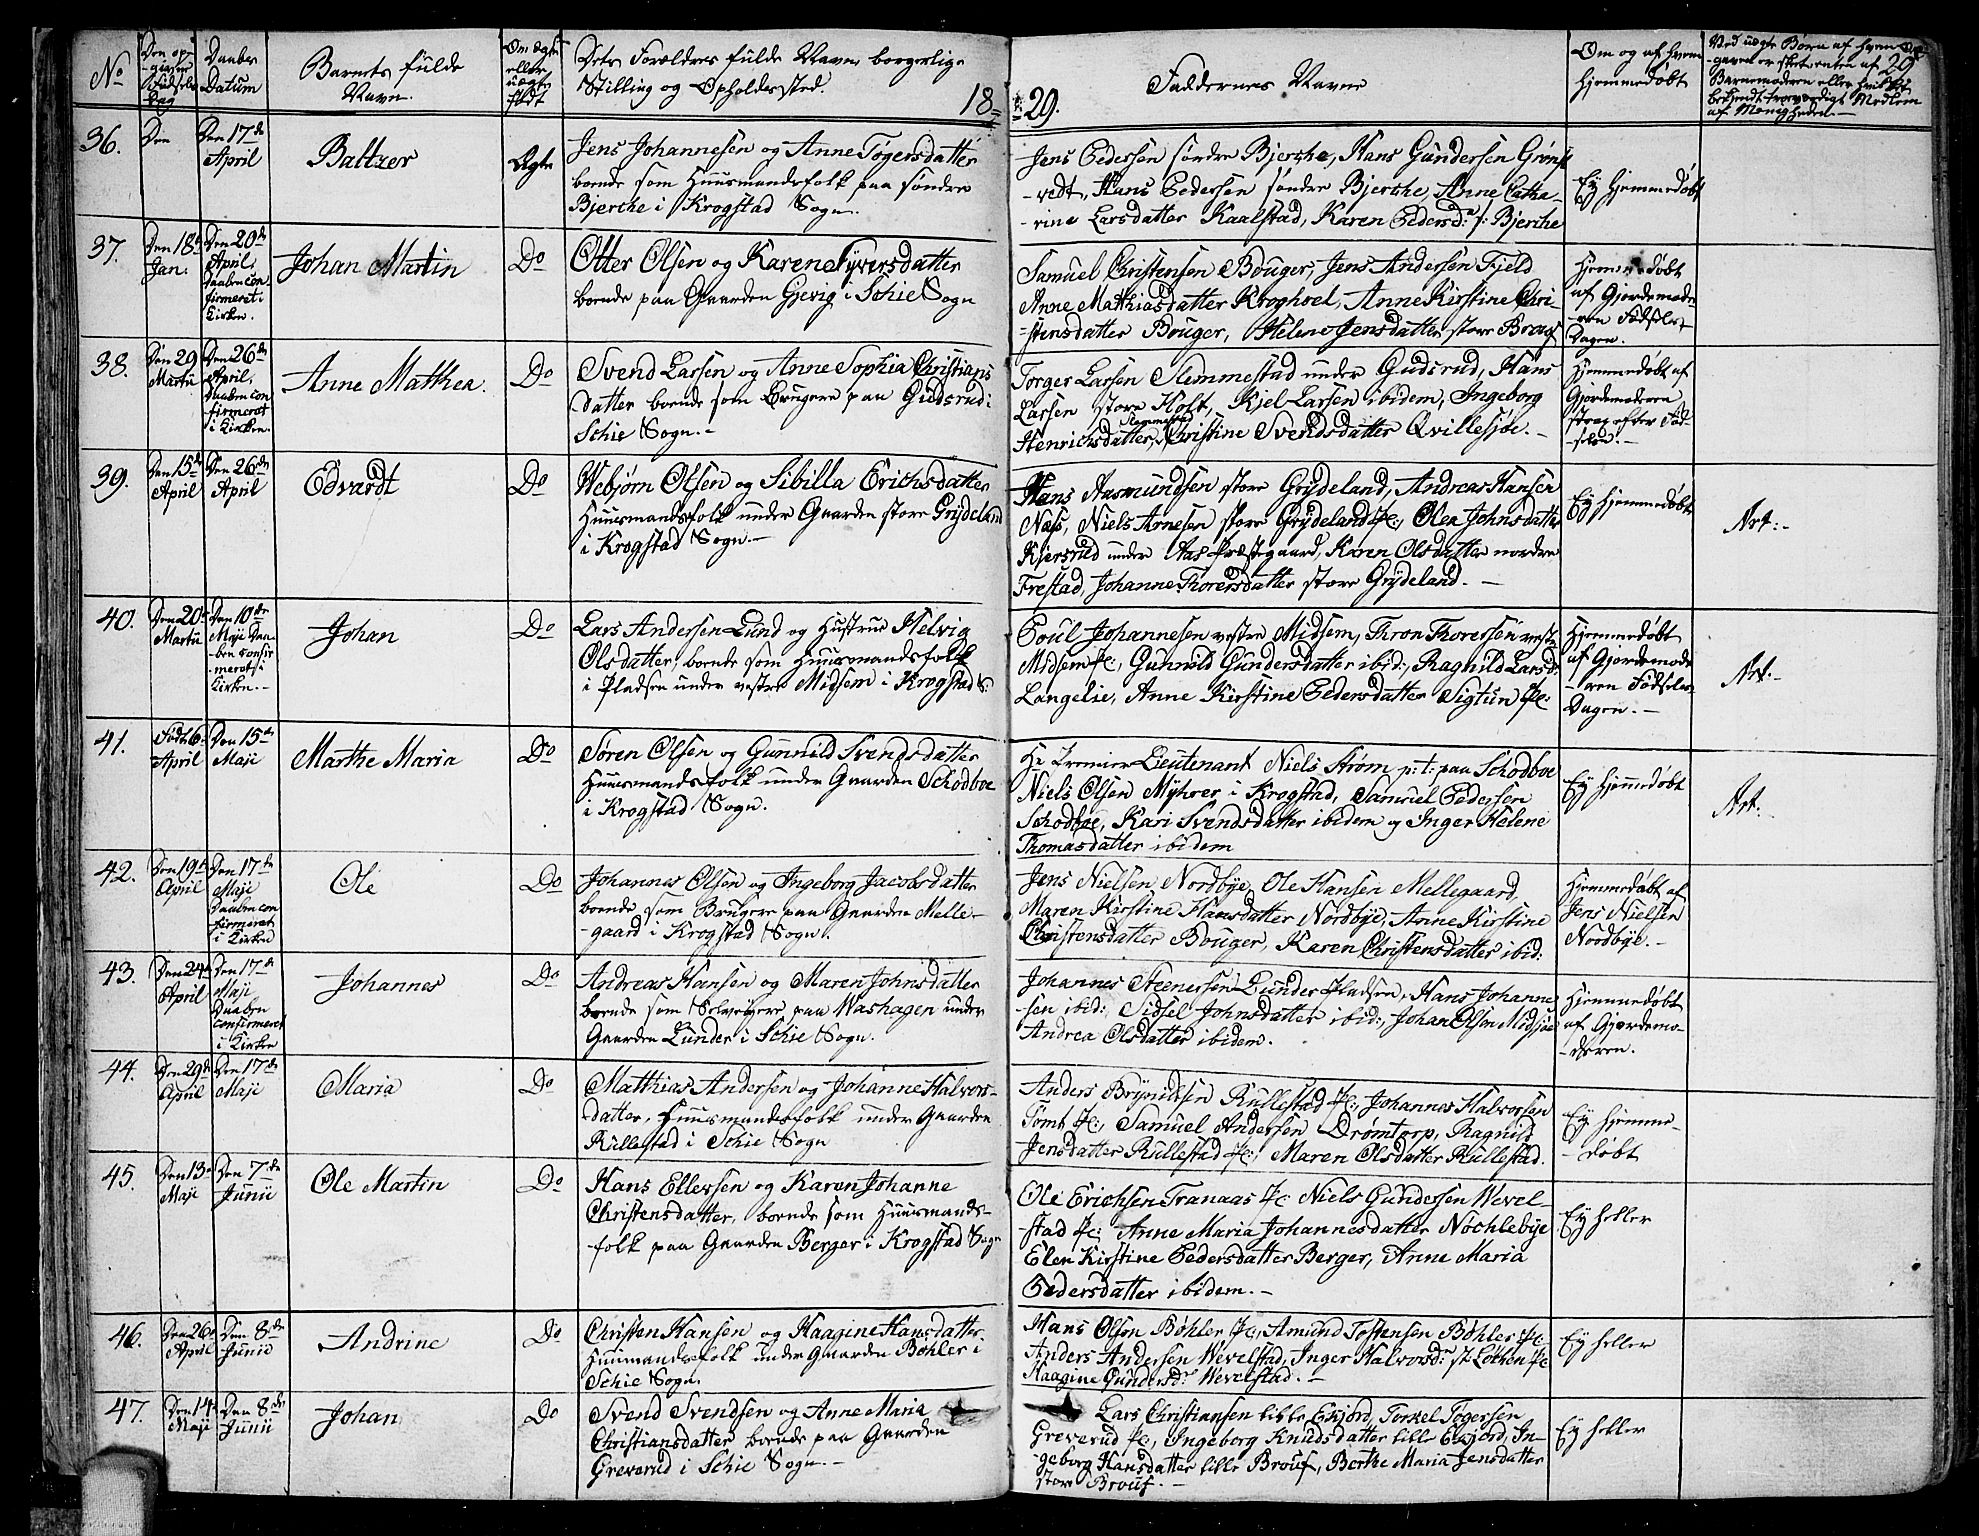 No
Den op-
givne
Fødsels
Dag
Daabes
Datum
Barnets fulde
Navn.
Om ægte
eller
uægte
født
Dets Forældres fulde Navne borgerlige
Stilling og Opholdssted.
18-
-29.
Faddernes Navne
Om og af hvem
hjemmedøbt
Ved uægte Børn af hvem An-
gaven er skeet enten af
Barnemoderen eller hvilket
bekjendt troeværdigt Medlem
af Menigheden.-
20
36.
Den
Den 17de
April
Baltzer
Ægte
Jens Johannesen og Anne Tøgersdatter
boende som Huusmandsfolk paa søndre
Bjerche i Krogstad Sogn.
Jens Pedersen søndre Bjerche, Hans Gundersen Grøns-
-vedt, Hans Pedersen søndre Bjerche, Anne Catha-
-rine Larsdatter Kaalstad, Karen Pedersd: s: Bjerche
Ej hjemmedøbt
37.
Den 18de
Jan.
Den 20de
April,
Daaben con-
firmeret i
Kirken.
Johan Martin
Do
Otter Olsen og Karen Syversdatter
boende paa Gaarden Gjevig i Schie Sogn
Samuel Christensen Bouger, Jens Andersen Fjeld
Anne Mathiasdatter Kroghoel, Anne Kirstine Chri-
-stensdatter Bouger, Helene Jensdatter store Brouf
Hjemmedøbt
af Gjordemode-
-ren Fødsels-
Dagen.
38.
Den 29
Martii
Den 26de
April,
Daaben con-
firmeret
i Kirken.
Anne Mathea.
Do
Svend Larsen og Anne Sophia Christians
datter boende som Brugere paa Gudsrud i
Schie Sogn.-
Torger Larsen Slemmestad under Gudsrud, Hans
Larsen store Holt, Kjel Larsen ibidem, Ingeborg
Henrichsdatter Slemmestad, Christine Svendsdatter Qvillesjøe.-
Hjemmedøbt af
Gjordemoderen
strax efter Fød-
selen.-
39.
Den 15de
April
Den 26de
April
Edvardt
Do
Webjørn Olsen og Sibilla Erichsdatter
Huusmandsfolk under Gaarden store Grydeland
i Krogstad Sogn.-
Hans Aasmundsen store Grydeland, Andreas Hansen
Næss, Niels Arnesen store Grydeland, Olea Johnsdatter
Kjersrud under Aas Præstegaard, Karen Olsdatter nordre
Frestad, Johanne Thorersdatter store Grydeland.-
Ej hjemmedøbt
Art:-
40.
Den 20de
Martii
Den 10de
Maji Daa-
ben confir-
-meret i
Kirken.-
Johan
Do
Lars Andersen Lund og Hustrue Helvig
Olsdatter, boende som Huusmandsfolk
i Pladsen under vestre Midsem i Krogstad S:
Poul Johannesen vestre Midsem, Thron Thoresen vestre
Midsem, Gunnild Gundersdatter ibid:, Ragnild Larsd:
Langelie, Anne Kirstine Pedersdatter Sigtun
Hjemmedøbt
af Gjordemode-
-ren Fødsels-
Dagen.-
Art:-
41.
Født 6te
April
Den 15de
Maji
Marthe Maria
Do
Søren Olsen og Gunnild Svendsdatter
Huusmandsfolk under Gaarden Schodboe
i Krogstad Sogn.
Hr Premier Lieutenant Niels Strøm p: t: paa Schodboe
Niels Olsen Myhrer i Krogstad, Samuel Pedersen
Schodboe, Kari Svendsdatter ibidem og Inger Helene
Thomasdatter ibidem
Ej hjemmedøbt
Art:-
42.
Den 19de
April
Den 17de
Maji
Daaben con-
firmeret
i Kirken
Ole
Do
Johannes Olsen og Ingeborg Jacobsdatter
boende som Brugere paa Gaarden Melle-
-gaard i Krogstad Sogn.
Jens Nielsen Nordbye, Ole Hansen Mellegaard,
Maren Kirstine Hansdatter Nordbye, Anne Kirstine
Christensdatter Bouger, Karen Christensdatter ibid:
Hjemmedøbt af
Jens Nielsen
Nordbye.-
43.
Den 24de
April
Den 17de
Maji
Daaben
confirmeret
i Kirken
Johannes
Do
Andreas Hansen og Maren Johnsdatter
boende som Selveiere paa Washagen under
Gaarden Lunder i Schie Sogn.
Johannes Steenersen Lunder Pladsen, Hans Johanne-
sen ibid:, Sidsel Johnsdatter ibid:, Johan Olsen Midsjøe
Andrea Olsdatter ibidem.
Hjemmedøbt
af Gjordemo-
-deren.
44.
Den 29de
April
Den 17de
Maji
Maria
Do
Mathias Andersen og Johanne Halvors-
-datter, Huusmandsfolk under Gaarden
Rullestad i Schie Sogn
Anders Brynildsen Rullestad, Johannes Halvorsen
Tømt, Samuel Andersen Drømtorp, Ragnild
Jensdatter Rullestad, Maren Olsdatter Rullestad.
Ej hjemme-
-døbt
45.
Den 13de
Maji
Den 7de
Junii
Ole Martin
Do
Hans Ellersen og Karen Johanne
Christensdatter, boende som Huusmands-
-folk paa Gaarden Berger i Krogstad Sogn
Ole Erichsen Tranaas, Niels Gundersen Wevel-
stad, Anne Maria Johannesdatter Nøchlebye
Elen Kirstine Pedersdatter Berger, Anne Maria
Pedersdatter ibidem.-
Ej heller
46.
Den 26de
April
Den 8de
Junii
Andrine
Do
Christen Hansen og Haagine Hansdatter
Huusmandsfolk under Gaarden Bøhler i
Schie Sogn.
Hans Olsen Bøhler, Amund Tostensen Bøhler
Anders Andersen Wevelstad, Inger Halvorsd: st: Løken
Haagine Gundersd: Wevelstad.-
Ej heller
47.
Den 14de
Maji
Den 8de
Junii
Johan
Do
Svend Svendsen og Anne Maria
Christiansdatter boende paa Gaarden
Greverud i Schie Sogn.-
Lars Christiansen lille Exjord, Torkel Tøgersen
Greverud, Ingeborg Knudsdatter lille Exjord, In-
-geborg Hansdatter lille Brouf, Berthe Maria Jensdatter
store Brouf.-
Ej heller